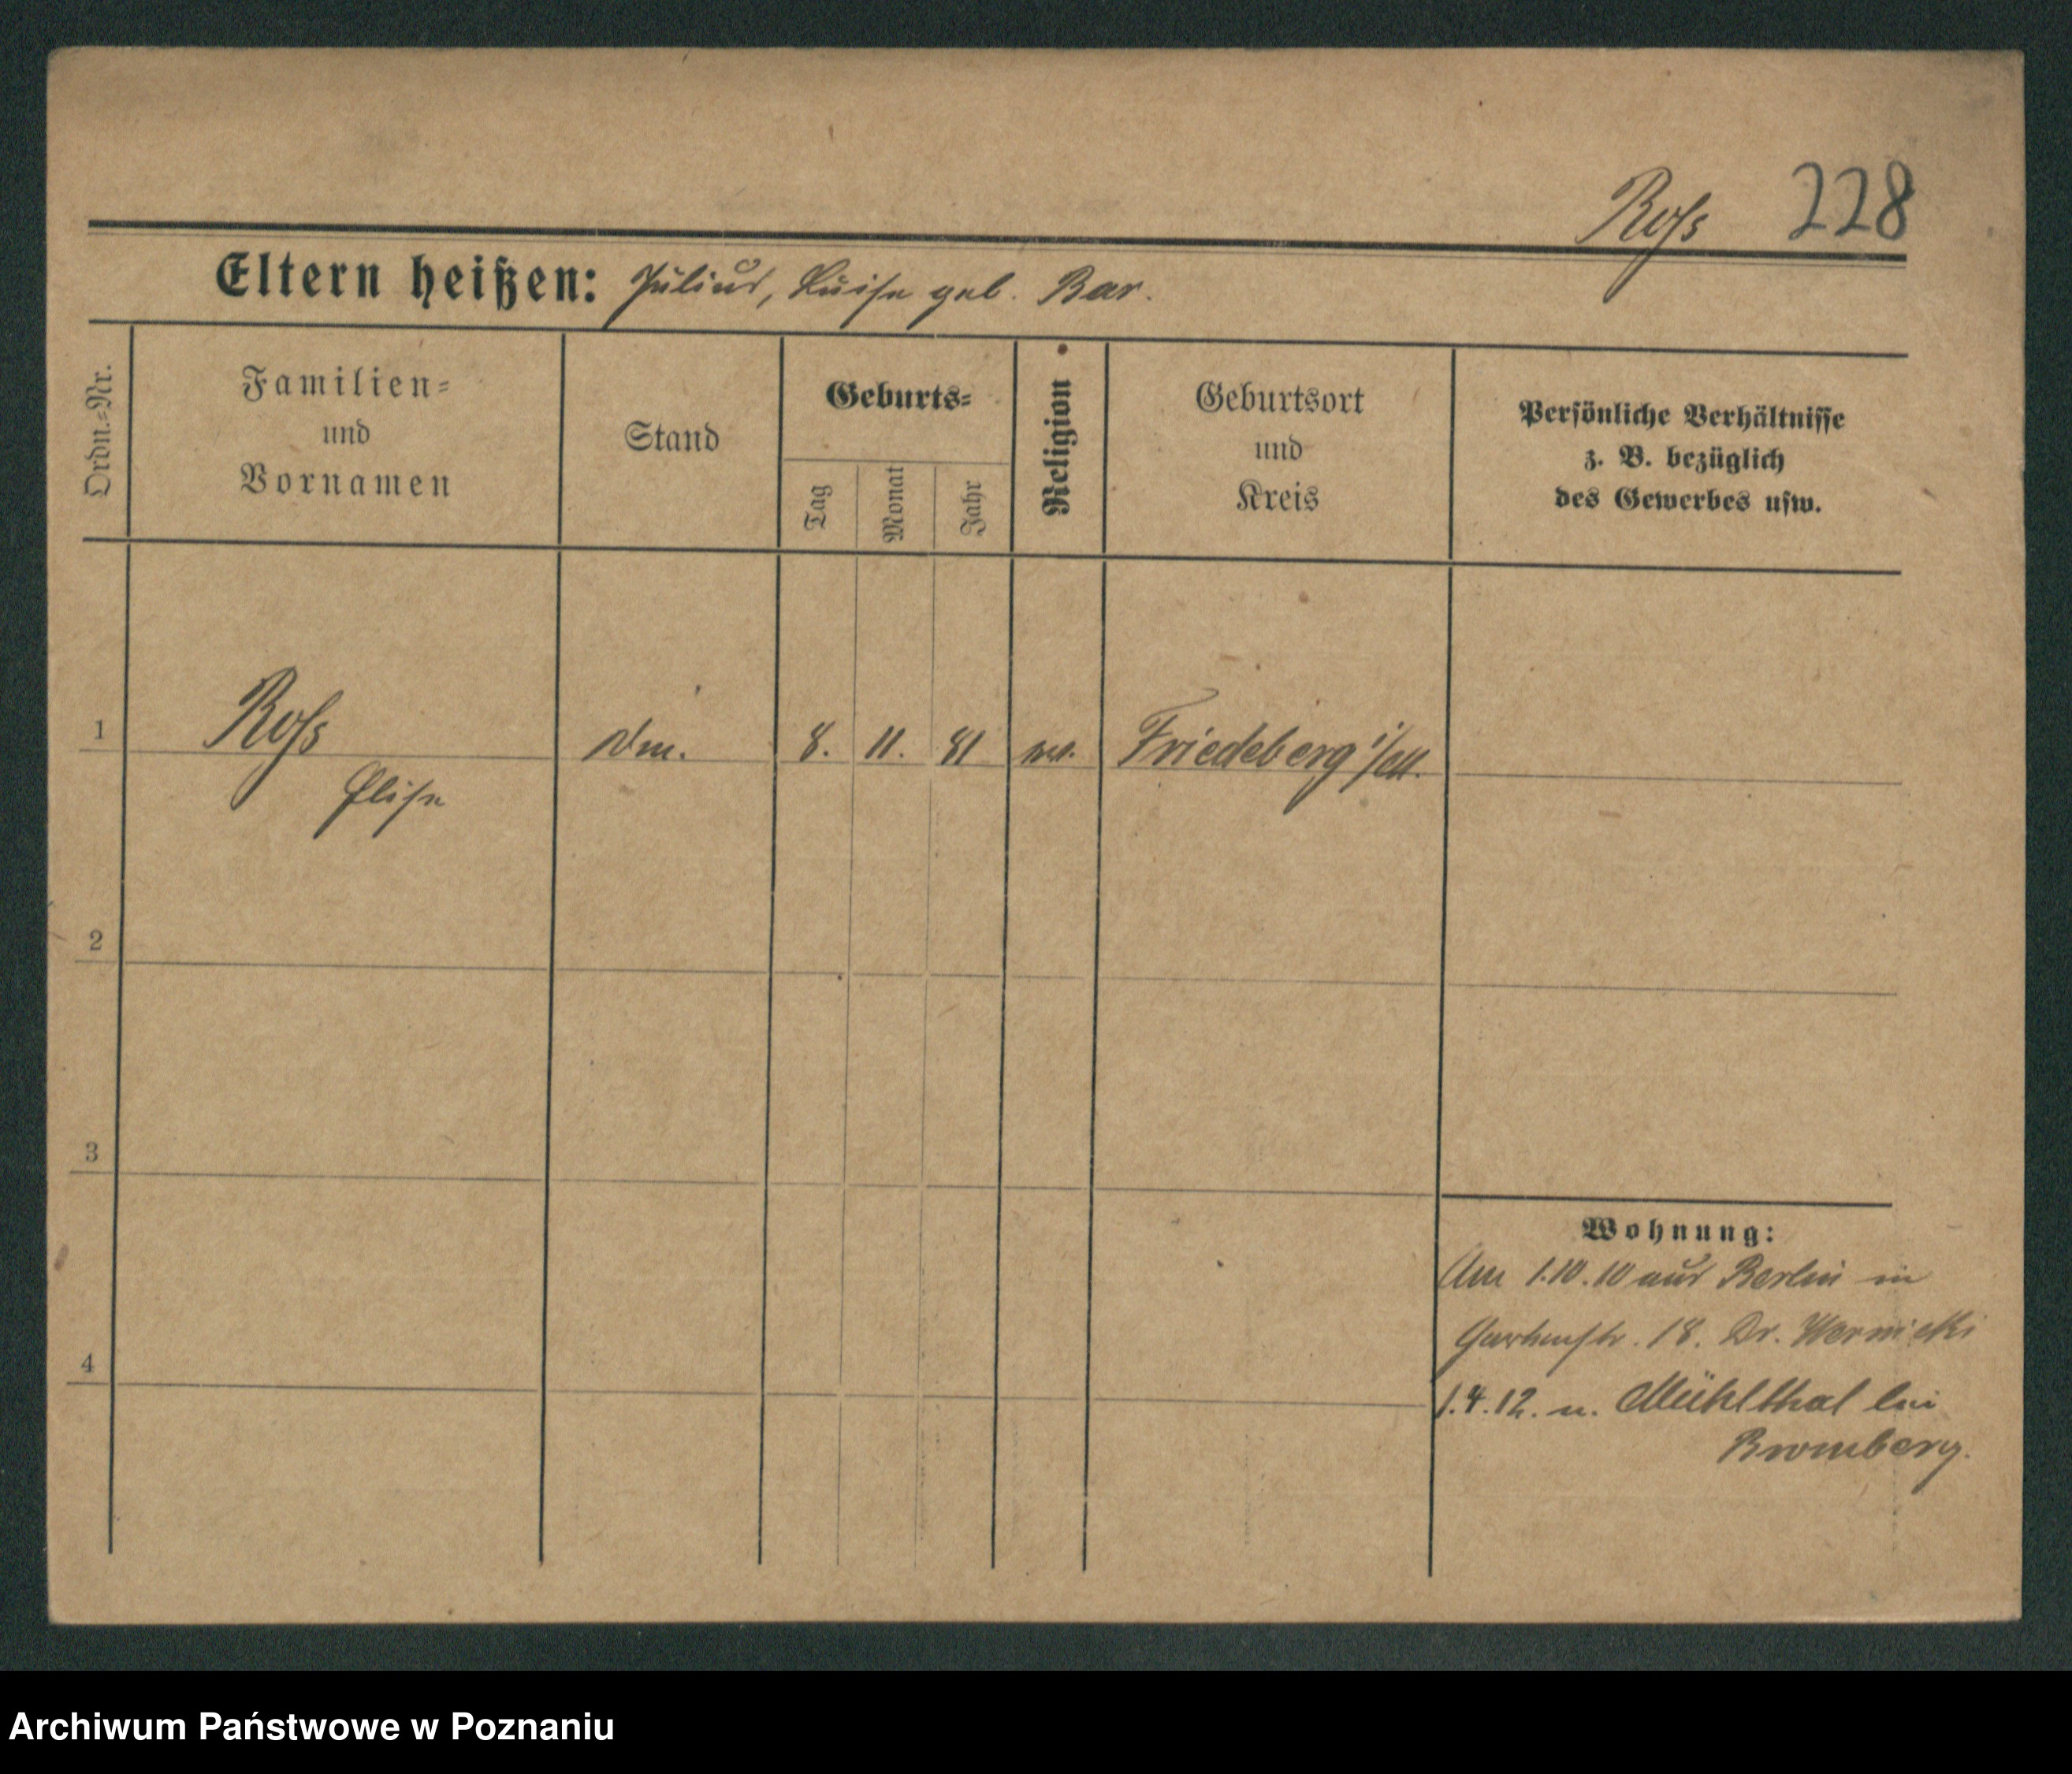 Roß 228
Eltern heißen: Julius, Luise geb. Bar.
Ordn.=Nr.
Familien=
und
Vornamen
Stand
Geburts=
Tag
Monat
Jahr
Religion
Geburtsort
und
Kreis
Persönliche Verhältnisse
z. B. bezüglich
des Gewerbes usw.
1 Roß 8. 11. 81 Friedeberg i/
Elise
2
3
4
Wohnung:
Am 1.10.10 aus Berlin in
Gartenstr. 18. Dr.
1.4.12. n. Mühlthal bei
Bromberg.
Archiwum Państwowe w Poznaniu